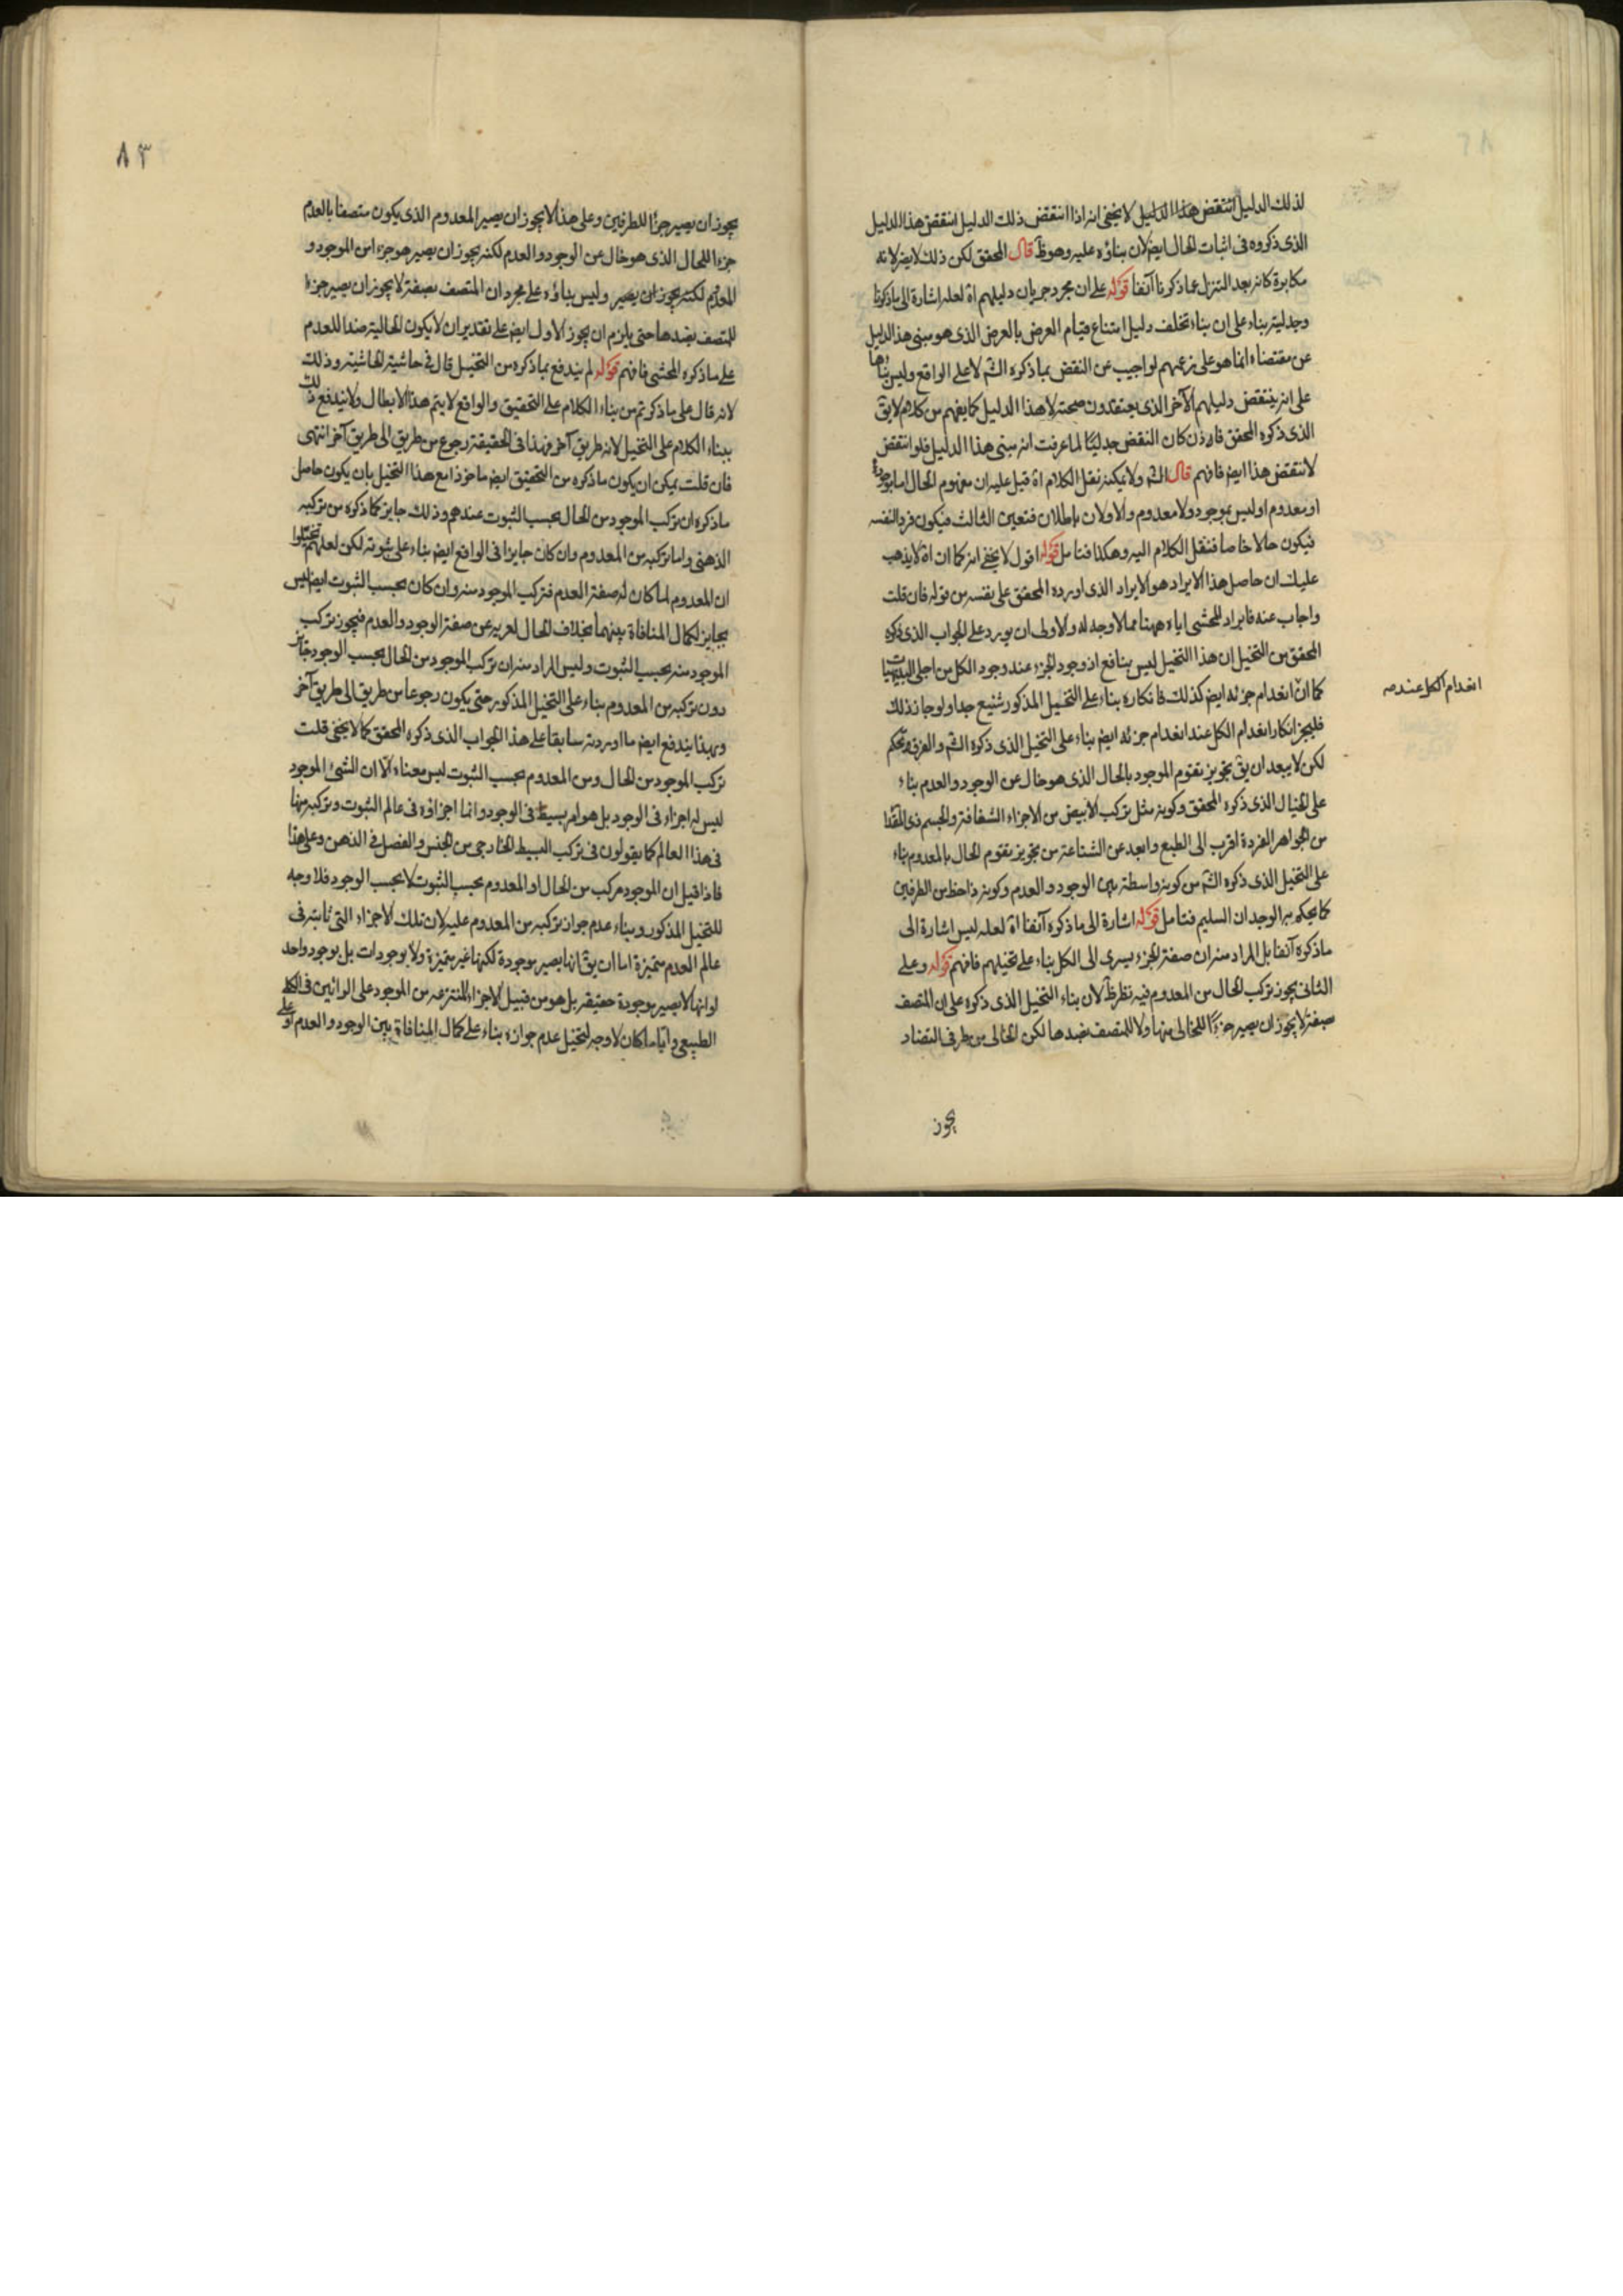 لذلك الدليل انتقض هذا الدليل لا يخفى انه اذا انتقض ذلك الدليل انتقض هذا الدليل
الذى ذكروه فى اثبات الحال ايضا لان بناؤه عليه وهو ظ قال المحقق لكن ذلك لا يضر لانه
مكابرة كانه بعد التنزل عما ذكرنا آنفا قوله على ان مجرد جريان دليلهم اه لعله اشارة الى ما ذكرنا
وجدليته بناء على ان بناء تخلف دليل امتناع قيام العرض بالعرض الذى هو مبنى هذا الدليل
عن مقتضاه انما هو على زعمهم لو اجيب عن النقض بما ذكره الش لا على الواقع وليس بناؤها
على انه ينتقض دليلهم الآخر الذى يعتقدون صحته لا هذا الدليل كما يفهم من كلامهم لا يق
الذى ذكره المحقق فان كان النقض جدليا لما عرفت انه مبنى هذا الدليل فلو انتقض
لانتقض هذا ايض فافهم قال الش ولا يمكنه نقل الكلام اه قيل عليه ان مفهوم الحال اما موجود
او معدوم او ليس بموجود ولا معدوم والاولان باطلان فتعين الثالث فيكون فردا لنفسه
فيكون حالا خاصا فننقل الكلام اليه وهكذا فتامل قوله اقول لا يخفى انه كما ان اه لا يذهب
عليك ان حاصل هذا الايراد هو الايراد الذى اورده المحقق على نفسه من قوله فان قلت
واجاب عنه فايراد المحشى اياه ههنا مما لا وجه له والاولى ان يورد على الجواب الذى ذكره
المحقق من التخيل ان هذا التخيل ليس بنافع اذ وجود الجزء عند وجود الكل من اجلى البديهيات
كما ان انعدام جزئه ايض كذلك فانكاره بناء على التخيل المذكور شنيع جدا ولو جاز ذلك
انعدام الكل عند صح
فليجز انكار انعدام الكل عند انعدام جزئه ايض بناء على التخيل الذى ذكره الش والفرق تحكم
لكن لا يبعد ان يق تجويز تقوم الموجود بالحال الذى هو خال عن الوجود والعدم بناء
على الخيال الذى ذكره المحقق وكونه مثل تركب الابيض من الاجزاء الشفافة والجسم ذى المقدار
من الجواهر الفردة اقرب الى الطبع وابعد عن الشناعة من تجويز تقوم الحال بالمعدوم بناء
على التخيل الذى ذكره الش من كونه واسطة بين الوجود والعدم وكونه ذا حظ من الطرفين
كما يحكم به الوجدان السليم فتامل قوله اشارة الى ما ذكره آنفا اه لعله ليس اشارة الى
ما ذكره آنفا بل المراد منه ان صفة الجزء يسرى الى الكل بناء على تخيلهم فافهم قوله وعلى
الثانى يجوز تركب الحال من المعدوم فيه نظر ظ لان بناء التخيل الذى ذكره على ان المتصف
بصفة لا يجوز ان يصير جزءا للخالى منها ولا للمتصف بضدها لكن الخالى من طرفى التضاد
يجوز
٨٣
يجوز ان يصير جزءا للطرفين وعلى هذا لا يجوز ان يصير المعدوم الذى يكون متصفا بالعدم
جزءا للحال الذى هو خال عن الوجود والعدم لكنه يجوز ان يصير هو جزءا من الموجود و
المعدوم لكنه يجوز ان يصير وليس بناؤه على مجرد ان المتصف بصفة لا يجوز ان يصير جزءا
للمتصف بضدها حتى يلزم ان يجوز الاول ايض على تقدير ان لا يكون الحالية ضدا للعدم
على ما ذكره المحشى فافهم قوله لم يندفع بما ذكره من التخيل قال فى حاشية الحاشية وذلك
لانه قال على ما ذكرتم من بناء الكلام على التحقيق والواقع لا يتم هذا الابطال ولا يندفع ذلك
ببناء الكلام على التخيل لانه طريق آخر فهذا فى الحقيقة رجوع من طريق الى طريق آخر انتهى
فان قلت يمكن ان يكون ما ذكره من التحقيق ايض ماخوذا مع هذا التخيل بان يكون حاصل
ما ذكره ان تركب الموجود من الحال بحسب الثبوت عندهم وذلك جايز كما ذكره من تركبه
الذهنى واما تركبه من المعدوم وان كان جايزا فى الواقع ايض بناء على ثبوته لكن لعلهم تخيلوا
ان المعدوم لما كان له صفة العدم فتركب الموجود منه وان كان بحسب الثبوت ايضا ليس
بجايز لكمال المنافاة بينهما بخلاف الحال لعريه عن صفة الوجود والعدم فيجوز تركب
الموجود منه بحسب الثبوت وليس المراد منه ان تركب الموجود من الحال بحسب الوجود جائز
دون تركبه من المعدوم بناء على التخيل المذكور حتى يكون رجوعا من طريق الى طريق آخر
وبهذا يندفع ايض ما اوردته سابقا على هذا الجواب الذى ذكره المحقق كما لا يخفى قلت
تركب الموجود من الحال ومن المعدوم بحسب الثبوت ليس معناه الا ان الشئ الموجود
ليس له اجزاء فى الوجود بل هو امر بسيط فى الوجود وانما اجزاؤه فى عالم الثبوت وتركبه منها
فى هذا العالم كما يقولون فى تركب البسيط الخارجى من الجنس والفصل فى الذهن وعلى هذا
فاذا قيل ان الموجود مركب من الحال او المعدوم بحسب الثبوت لا بحسب الوجود فلا وجه
للتخيل المذكور وبناء عدم جواز تركبه من المعدوم عليه لان تلك الاجزاء التى ثابتة فى
عالم العدم متميزة اما ان يق انها يصير موجودة لكنها غير متميزة ولا بوجودات بل بوجود واحد
او انها لا يصير موجودة حقيقة بل هو من قبيل الاجزاء المنتزعة من الموجود على الرائين فى الكلى
الطبيعى وايا ما كان لا وجه لتخيل عدم جوازه بناء على كمال المنافاة بين الوجود والعدم او على